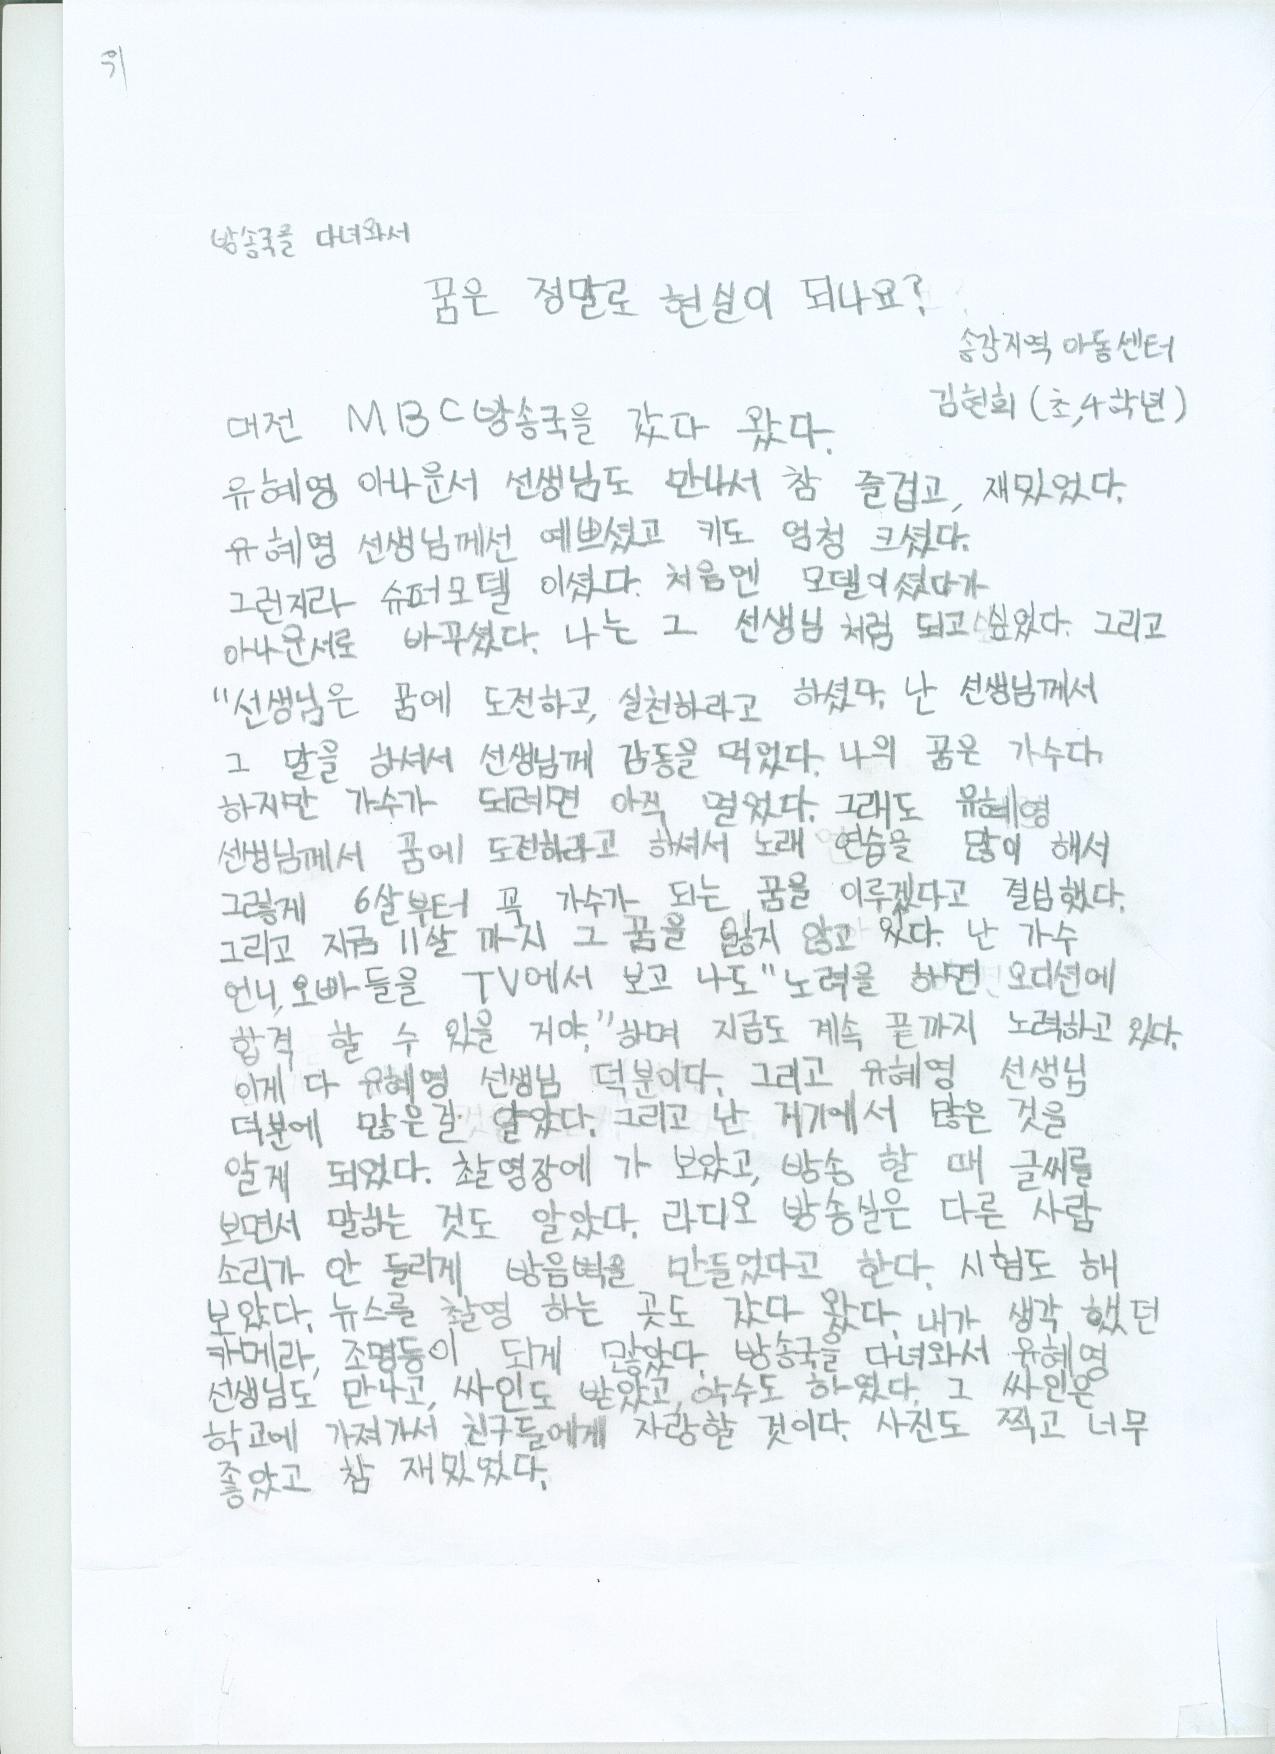 위
방송국을 다녀와서
꿈은 정말로 현실이 되나요?
송강지역 아동센터
김현희 (초,4학년)
대전 MBC방송국을 갔다 왔다.
유혜영 아나운서 선생님도 만나서 참 즐겁고, 재밌었다.
유혜영 선생님께선 예쁘셨고 키도 엄청 크셨다.
그런지라 슈퍼모델 이셨다. 처음엔 모델이셨다가
아나운서로 바꾸셨다. 나는 그 선생님 처럼 되고 싶었다. 그리고
"선생님은 꿈에 도전하고, 실천하라고 하셨다. 난 선생님께서
그 말을 하셔서 선생님께 감동을 먹었다. 나의 꿈은 가수다.
하지만 가수가 되려면 아직 멀었다. 그래도 유혜영
선생님께서 꿈에 도전하라고 하셔서 노래 연습을 많이 해서
그렇게 6살부터 꼭 가수가 되는 꿈을 이루겠다고 결심했다.
그리고 지금 11살 까지 그 꿈을 잃지 않고 있다. 난 가수
언니, 오빠들을 TV에서 보고 나도 "노력을 하면 오디션에
합격 할 수 있을 거야," 하며 지금도 계속 끝까지 노력하고 있다.
이게 다 유혜영 선생님 덕분이다. 그리고 유혜영 선생님
덕분에 많은걸 알았다. 그리고 난 거기에서 많은 것을
알게 되었다. 촬영장에 가 보았고, 방송 할 때 글씨를
보면서 말하는 것도 알았다. 라디오 방송실은 다른 사람
소리가 안 들리게 방음벽을 만들었다고 한다. 시험도 해
보았다. 뉴스를 촬영 하는 곳도 갔다 왔다. 내가 생각 했던
카메라, 조명등이 되게 많았다. 방송국을 다녀와서 유혜영
선생님도 만나고, 싸인도 받았고, 악수도 하였다. 그 싸인은
학교에 가져가서 친구들에게 자랑할 것이다. 사진도 찍고 너무
좋았고 참 재밌었다.